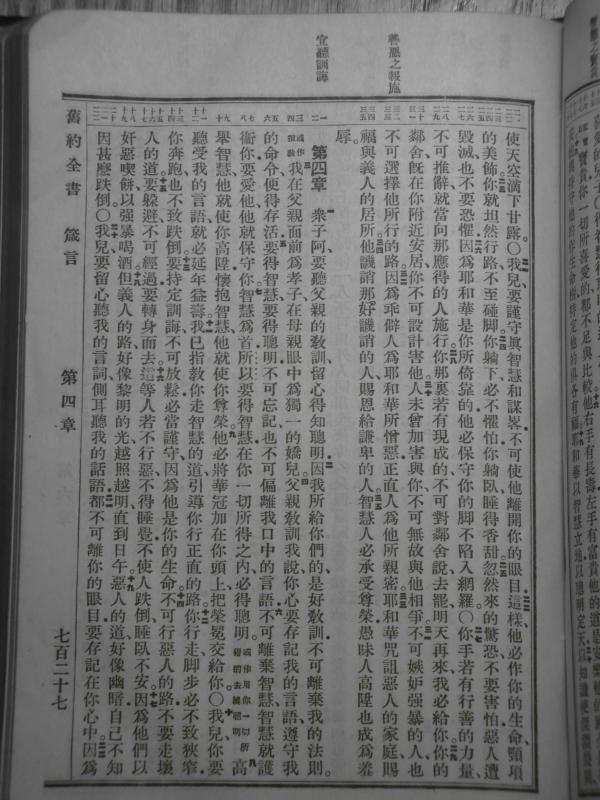 善惡之報施
宜聽訓誨
使天空滴下甘露〇我兒要謹守眞智慧和謀畧不可使他離開你的眼目這樣他必作你的生命頸項
的美飾你就坦然行路不至碰脚你躺下必不懼怕你躺臥睡得香甜忽然來的驚恐不要害怕惡人遭
毀滅也不要恐懼因爲耶和華是你所倚靠的他必保守你的脚不陷入網羅〇你手若有行善的力量
不可推辭就當向那應得的人施行你那裏若有現成的不可對鄰舍說去罷明天再來我必給你你的
鄰舍旣在你附近安居你不可設計害他人未曾加害與你不可無故與他相爭不可嫉妒强暴的人也
不可選擇他所行的路因爲乖僻人爲耶和華所憎惡正直人爲他所親密耶和華咒詛惡人的家庭賜
福與義人的居所他譏誚那好譏誚的人賜恩給謙卑的人智慧人必承受尊榮愚昧人高陞也成爲羞
辱
第四章 衆子阿要聽父親的敎訓留心得知聰明因我所給你們的是好敎訓不可離棄我的法則
我在父親面前爲孝子在母親眼中爲獨一的嬌兒父親敎訓我說你心要存記我的言語遵守我
的命令便得存活要得智慧要得聰明不可忘記也不可偏離我口中的言語不可離棄智慧智慧就護
衞你要愛他他就保守你智慧爲首所以要得智慧在你一切所得之內必得聰明或作用你一切所得的去換聰明高
舉智慧他就使你高陞懷抱智慧他就使你尊榮他必將華冠加在你頭上把榮冕交給你〇我兒你要
聽受我的言語就必延年益壽我已指敎你走智慧的道引導你行正直的路你行走脚步必不致狹窄
你奔跑也不致跌倒要持定訓誨不可放鬆必當謹守因爲他是你的生命不可行惡人的路不要走壞
人的道要躱避不可經過要轉身而去這等人若不行惡不得睡覺不使人跌倒睡臥不安因爲他們以
奸惡喫餅以强暴喝酒但義人的路好像黎明的光越照越明直到日午惡人的道好像幽暗自己不知
因甚麽跌倒〇我兒要留心聽我的言詞側耳聽我的話語都不可離你的眼目要存記在你心中因爲
舊約全書 箴言 第四章 七百二十七